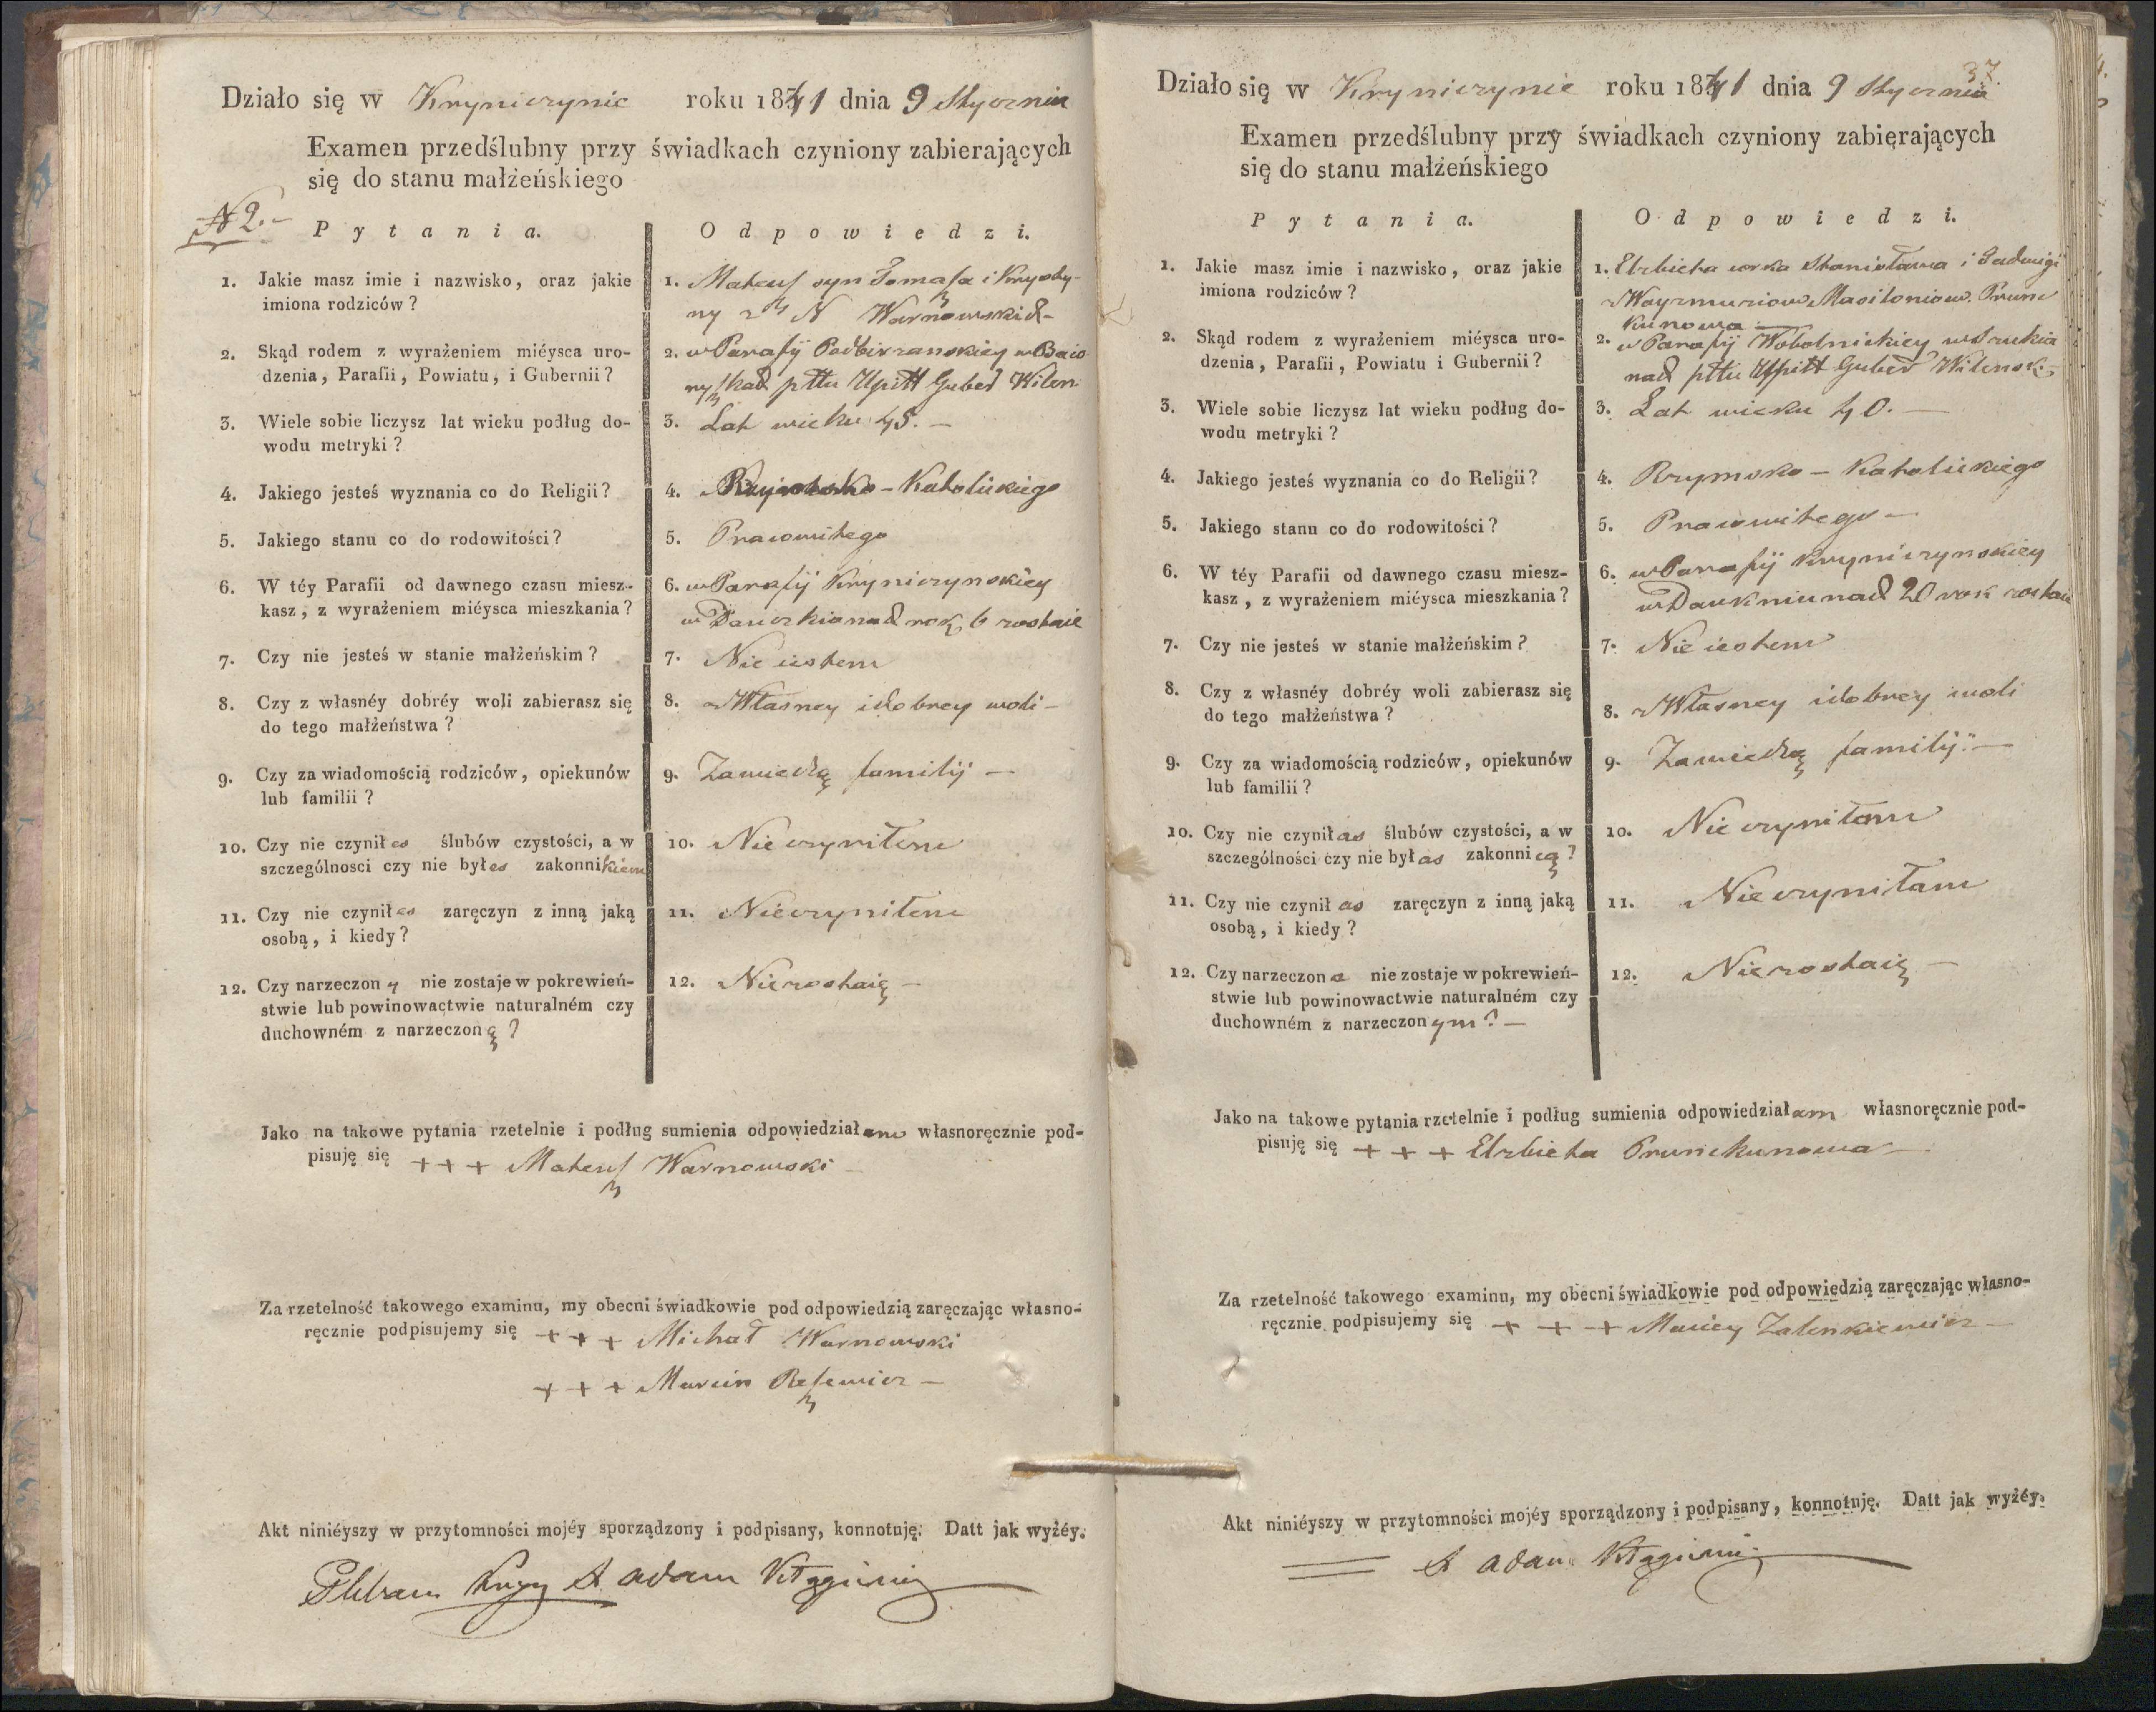 Działo się w Kryniczynie roku 1841 dnia 9 Stycznia
Examen przedślubny przy świadkach czyniony zabierających
się do stanu małżeńskiego
N 2.-
Pytania.
Odpowiedzi.
1. Jakie masz imie i nazwisko, oraz jakie
imiona rodziców?
1. Mateusz syn Tomasza i Krysty-
ny z N Warnowskich
2. Skąd rodem z wyrażeniem miéysca uro-
dzenia, Parafii, Powiatu, i Gubernii?
2. w Parafij Podbirzanskiey w
pttu Upitt Guber Wilen
3. Wiele sobie liczysz lat wieku podług do-
wodu metryki?
3. Lat wieku 45. –
4. Jakiego jesteś wyznania co do Religii?
4. Rzymsko – Katolickiego
5. Jakiego stanu co do rodowitości?
5. Pracowitego
6. W téy Parafii od dawnego czasu miesz-
kasz, z wyrażeniem miéysca mieszkania?
6. w Parafij Kryniczynskiey
w rok 6 zostaie
7. Czy nie jesteś w stanie małżeńskim?
7. Nie iestem
8. Czy z własnéy dobréy woli zabierasz się
do tego małżeństwa?
8. z Własney i dobrey woli –
9. Czy za wiadomością rodziców, opiekunów
lub familii?
9. Zawiedzą familij –
10. Czy nie czyniłes ślubów czystości, a w
szczególnosci czy nie byłes zakonnikiem
10. Nie czyniłem
11. Czy nie czyniłes zaręczyn z inną jaką
osobą, i kiedy?
11. Nie czyniłem
12. Czy narzeczony nie zostaje w pokrewień-
stwie lub powinowactwie naturalném czy
duchowném z narzeczoną?
12. Nie zostaię –
Jako na takowe pytania rzetelnie i podług sumienia odpowiedziałem własnoręcznie pod-
pisuję się + + + Mateusz Warnowski –
Za rzetelność takowego examinu, my obecni świadkowie pod odpowiedzią zaręczając własno-
ręcznie podpisujemy się + + + Michał Warnowski
+ + + Marcin Reszewicz –
Akt niniéyszy w przytomności mojéy sporządzony i podpisany, konnotuję. Datt jak wyżéy.
Pleban X Adam
37.
Działo się w Kryniczynie roku 1841 dnia 9 Stycznia
Examen przedślubny przy świadkach czyniony zabierających
się do stanu małżeńskiego
Pytania.
Odpowiedzi.
1. Jakie masz imie i nazwisko, oraz jakie
imiona rodziców?
1. Elzbieta corka Stanisława i Jadwigi
z Prune
kunowa
2. Skąd rodem z wyrażeniem miéysca uro-
dzenia, Parafii, Powiatu i Gubernii?
2. w Parafij Wobolnickiey w
nad pttu Upitt Guber Wilensk
3. Wiele sobie liczysz lat wieku podług do-
wodu metryki?
3. Lat wieku 40. –
4. Jakiego jesteś wyznania co do Religii?
4. Rzymsko – Katolickiego
5. Jakiego stanu co do rodowitości?
5. Pracowitego –
6. W téy Parafii od dawnego czasu miesz-
kasz, z wyrażeniem miéysca mieszkania?
6. w Parafij Kryniczynskiey
w 20 rok zostaie
7. Czy nie jesteś w stanie małżeńskim?
7. Nie iestem
8. Czy z własnéy dobréy woli zabierasz się
do tego małżeństwa?
8. z Własney i dobrey woli
9. Czy za wiadomością rodziców, opiekunów
lub familii?
9. Zawiedzą familij. –
10. Czy nie czyniłas ślubów czystości, a w
szczególności czy nie byłas zakonnicą?
10. Nie czyniłam
11. Czy nie czyniłas zaręczyn z inną jaką
osobą, i kiedy?
11. Nie czyniłam
12. Czy narzeczona nie zostaje w pokrewień-
stwie lub powinowactwie naturalném czy
duchowném z narzeczonym? –
12. Nie zostaię –
Jako na takowe pytania rzetelnie i podług sumienia odpowiedziałam własnoręcznie pod-
pisuję się + + + Elzbieta Prunekunowa –
Za rzetelność takowego examinu, my obecni świadkowie pod odpowiedzią zaręczając własno-
ręcznie podpisujemy się + + + Maciey Zalenkiewicz –
Akt niniéyszy w przytomności mojéy sporządzony i podpisany, konnotuję. Datt jak wyżéy.
X Adam